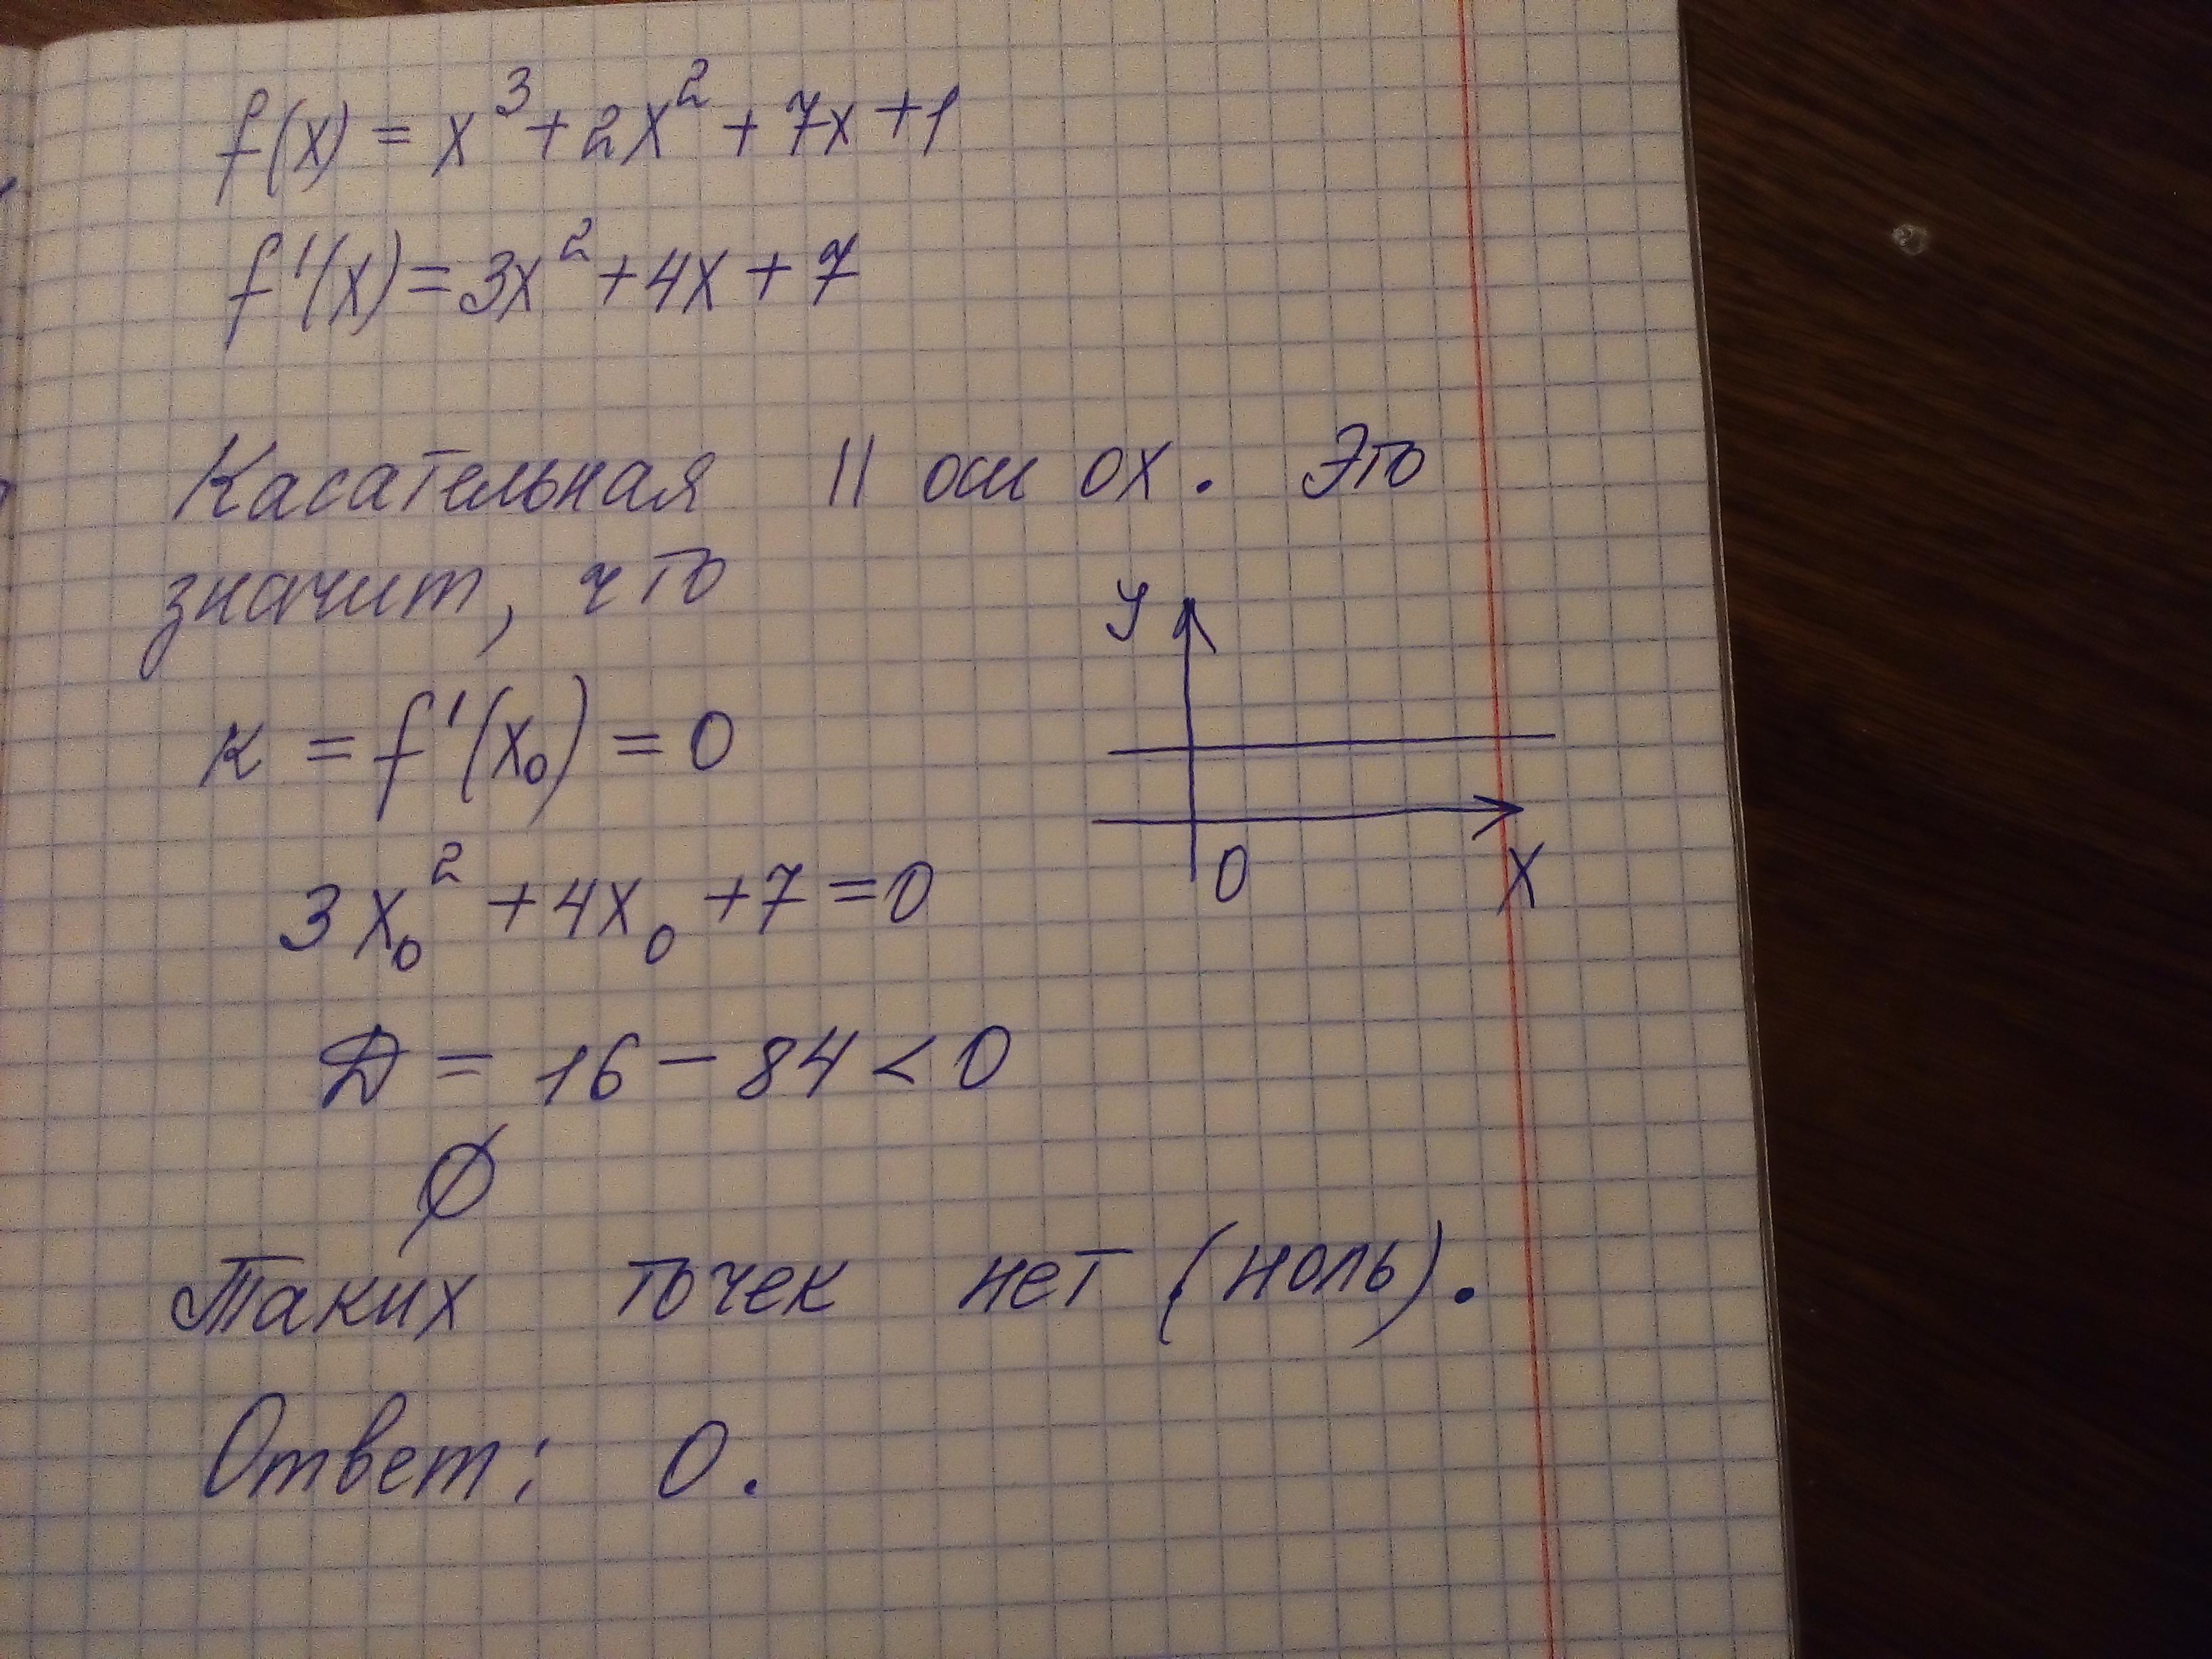 f(x) = x³ + 2x² + 7x + 1
f'(x) = 3x² + 4x + 7
Касательная || оси ox. Это
значит, что
y
к = f'(x₀) = 0
3x₀² + 4x₀ + 7 = 0
0 x
Д = 16 - 84 < 0
∅
Таких точек нет (ноль).
Ответ: 0.